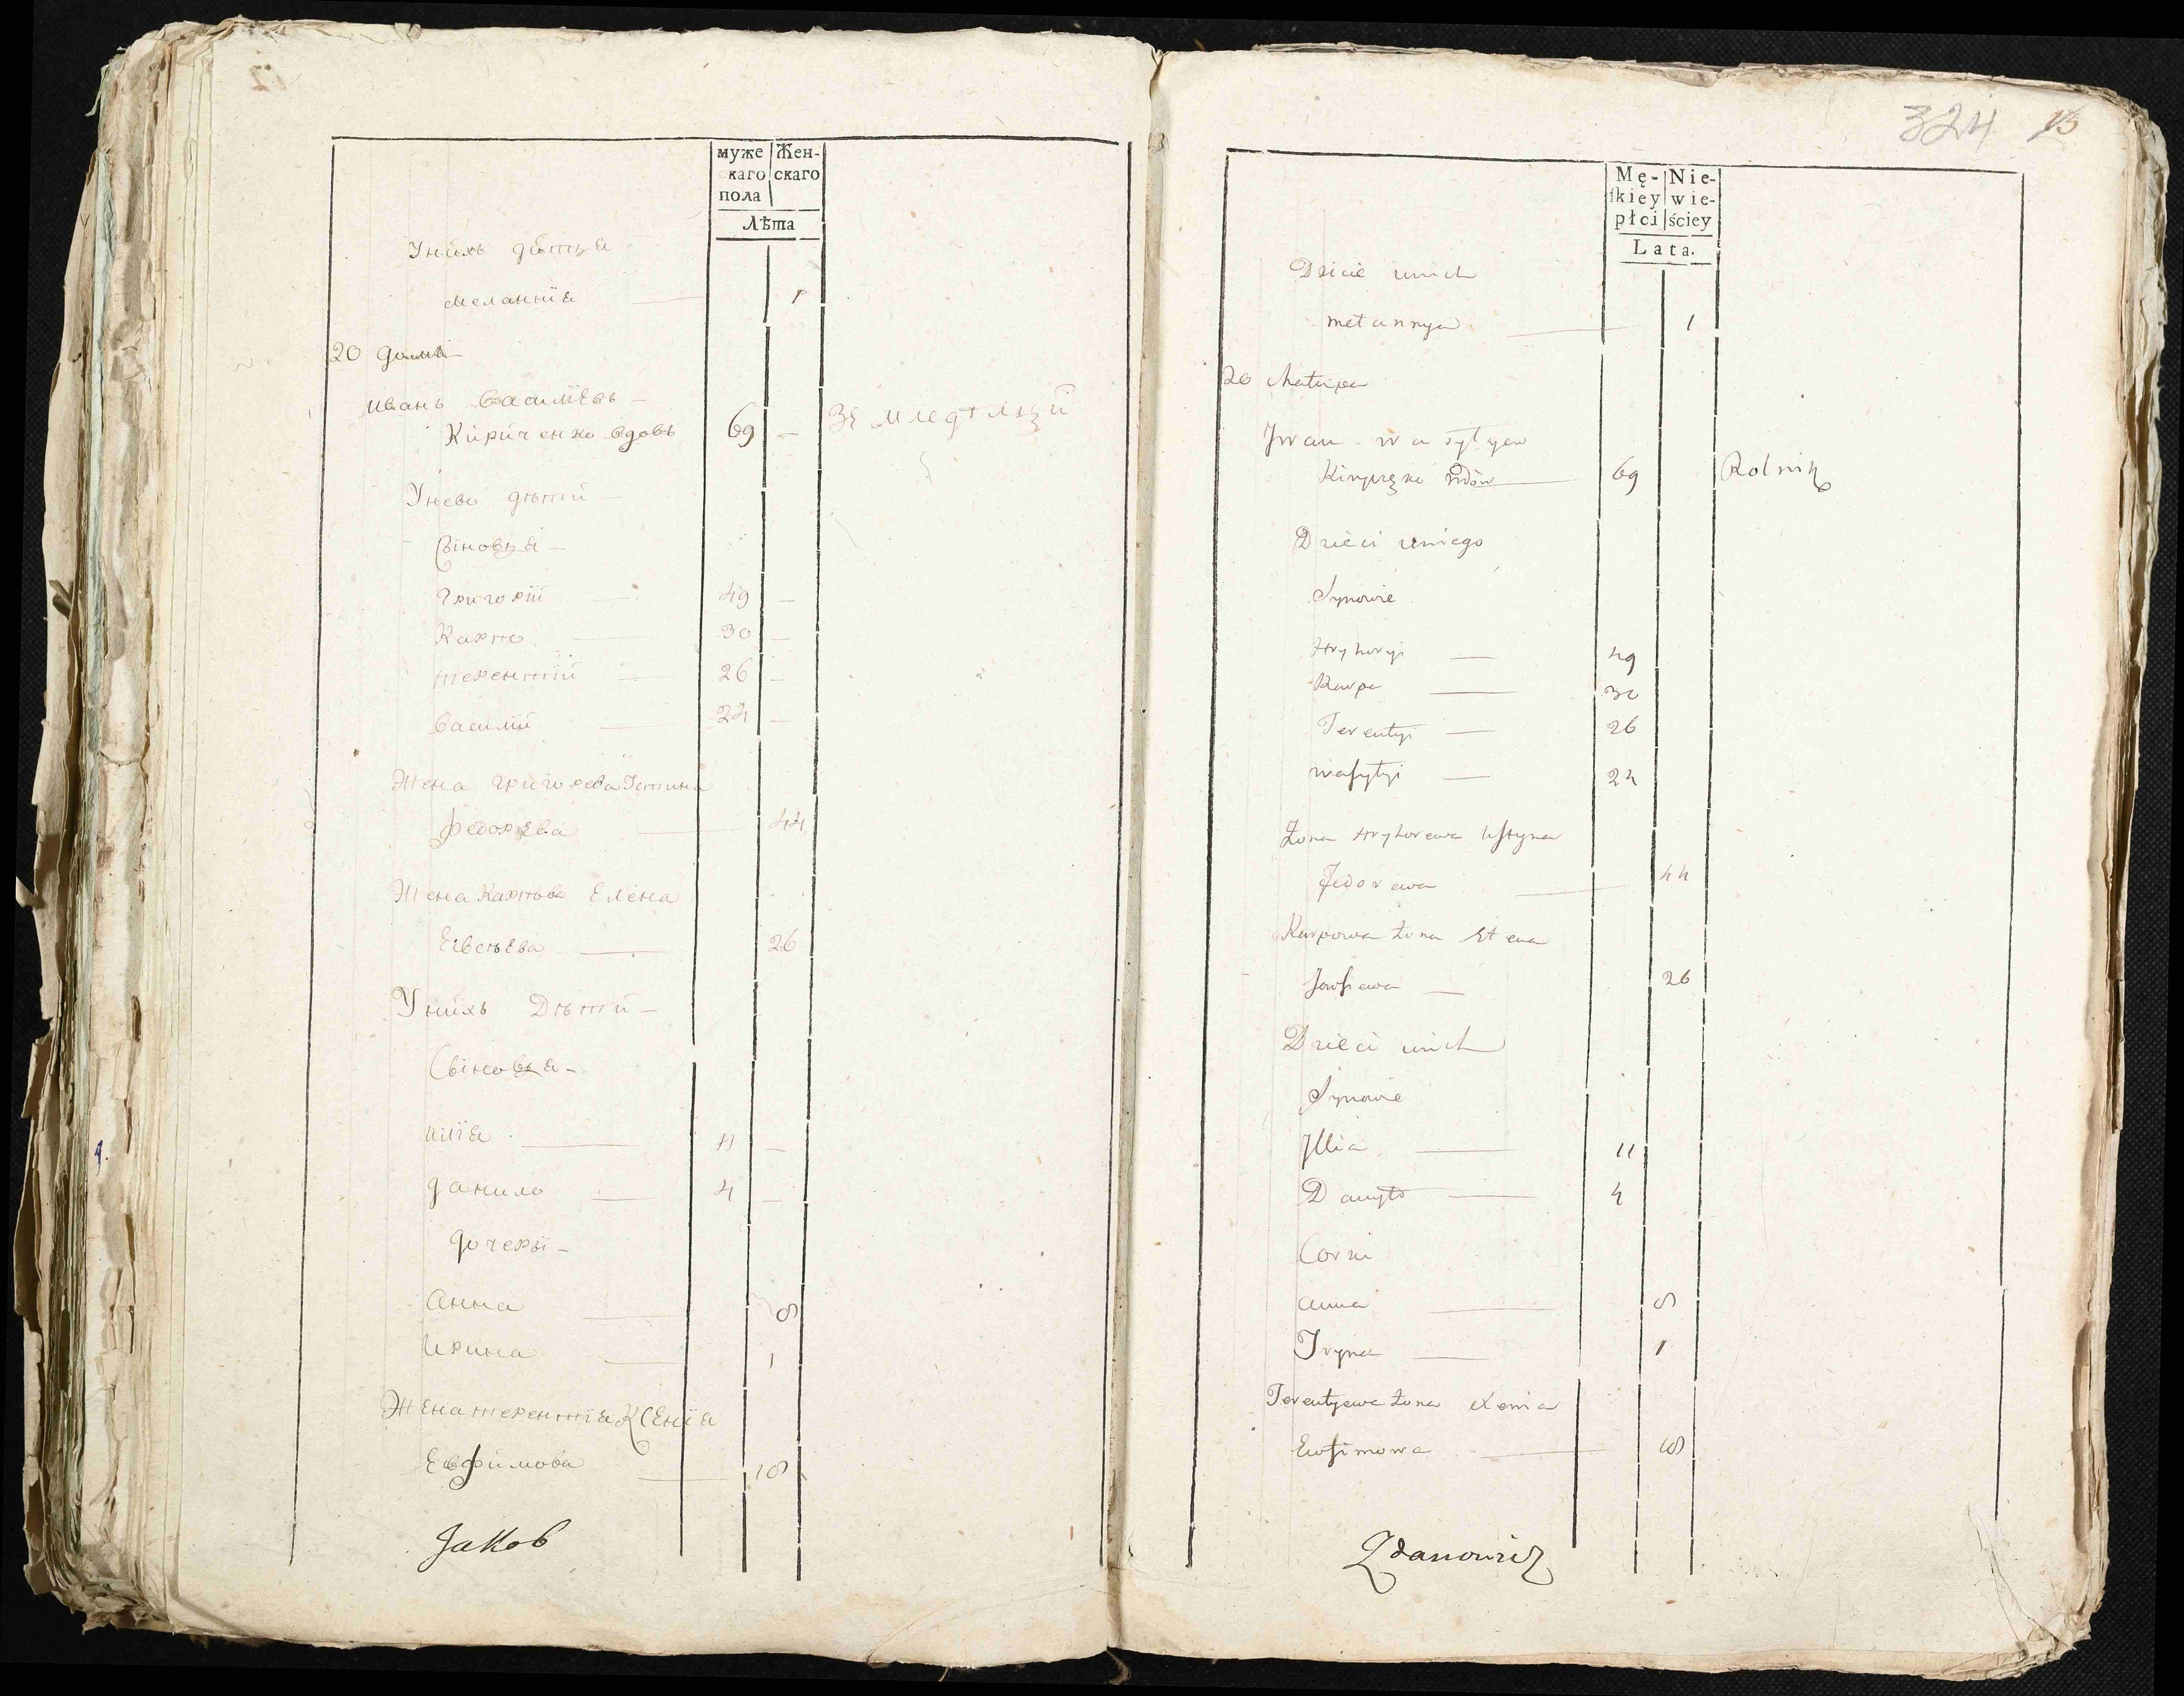 муже Жен-
каго скаго
пола
Лѣта
Унихъ дѣтя
Меланнїя — 1
20 домъ
Иванъ Василїевъ —
Кириченко вдовъ 69 — Земледѣлцй
Унево дѣтй —
Сыновья —
Григорїй — 49 —
Карпо — 30 —
Терентїй — 26 —
Василїй — 24 —
Жена Григорева Устина
Федорева — 44
Жена Карпова Елена
Евсѣева — 26
Унихъ Дѣтй —
Сыновья —
Илїя — 11 —
Данило — 4 —
Дочерїи —
Анна — 8
Ирина — 1
Жена Терентїя Ксенїя
Евфимова — 18
Jakob
324 13
Mę- Nie-
ſkiey wie-
płci ściey
Lata.
Dzicie unich
Metannya — 1
20 Chatupa
Jwan Wasylyew
Kiryczęko wdow — 69 Rolnik
Dzieci uniego
Synowie
Hryhoryi — 49
Karpo — 30
Terentyi — 26
Waſylyi — 24
Żona Hryhorewa Uſtyna
Fedorewa — 44
Karpowa żona Elena
Jewſiewa — 26
Dzieci unich
Synowie
Jllia — 11
Danyło — 4
Corki
Anna — 8
Iryna — 1
Terentyewa żona Xenia
Ewfimowa — 18
Zdanowicz